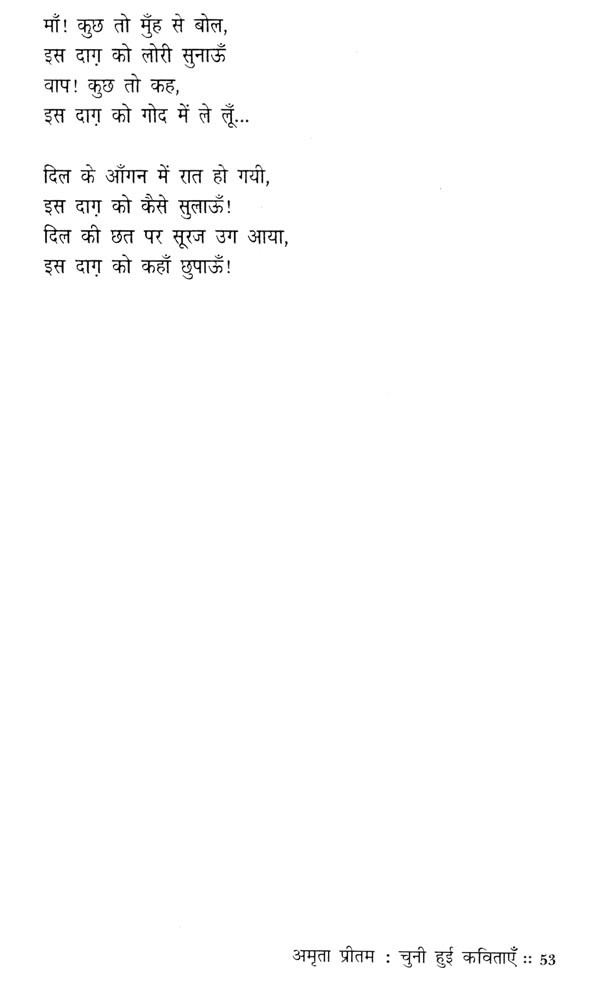 माँ! कुछ तो मुँह से बोल,
इस दाग़ को लोरी सुनाऊँ
वाप! कुछ तो कह,
इस दाग़ को गोद में ले लूँ...
दिल के आँगन में रात हो गयी,
इस दाग़ को कैसे सुलाऊँ!
दिल की छत पर सूरज उग आया,
इस दाग़ को कहाँ छुपाऊँ!
अमृता प्रीतम : चुनी हुई कविताएँ :: 53